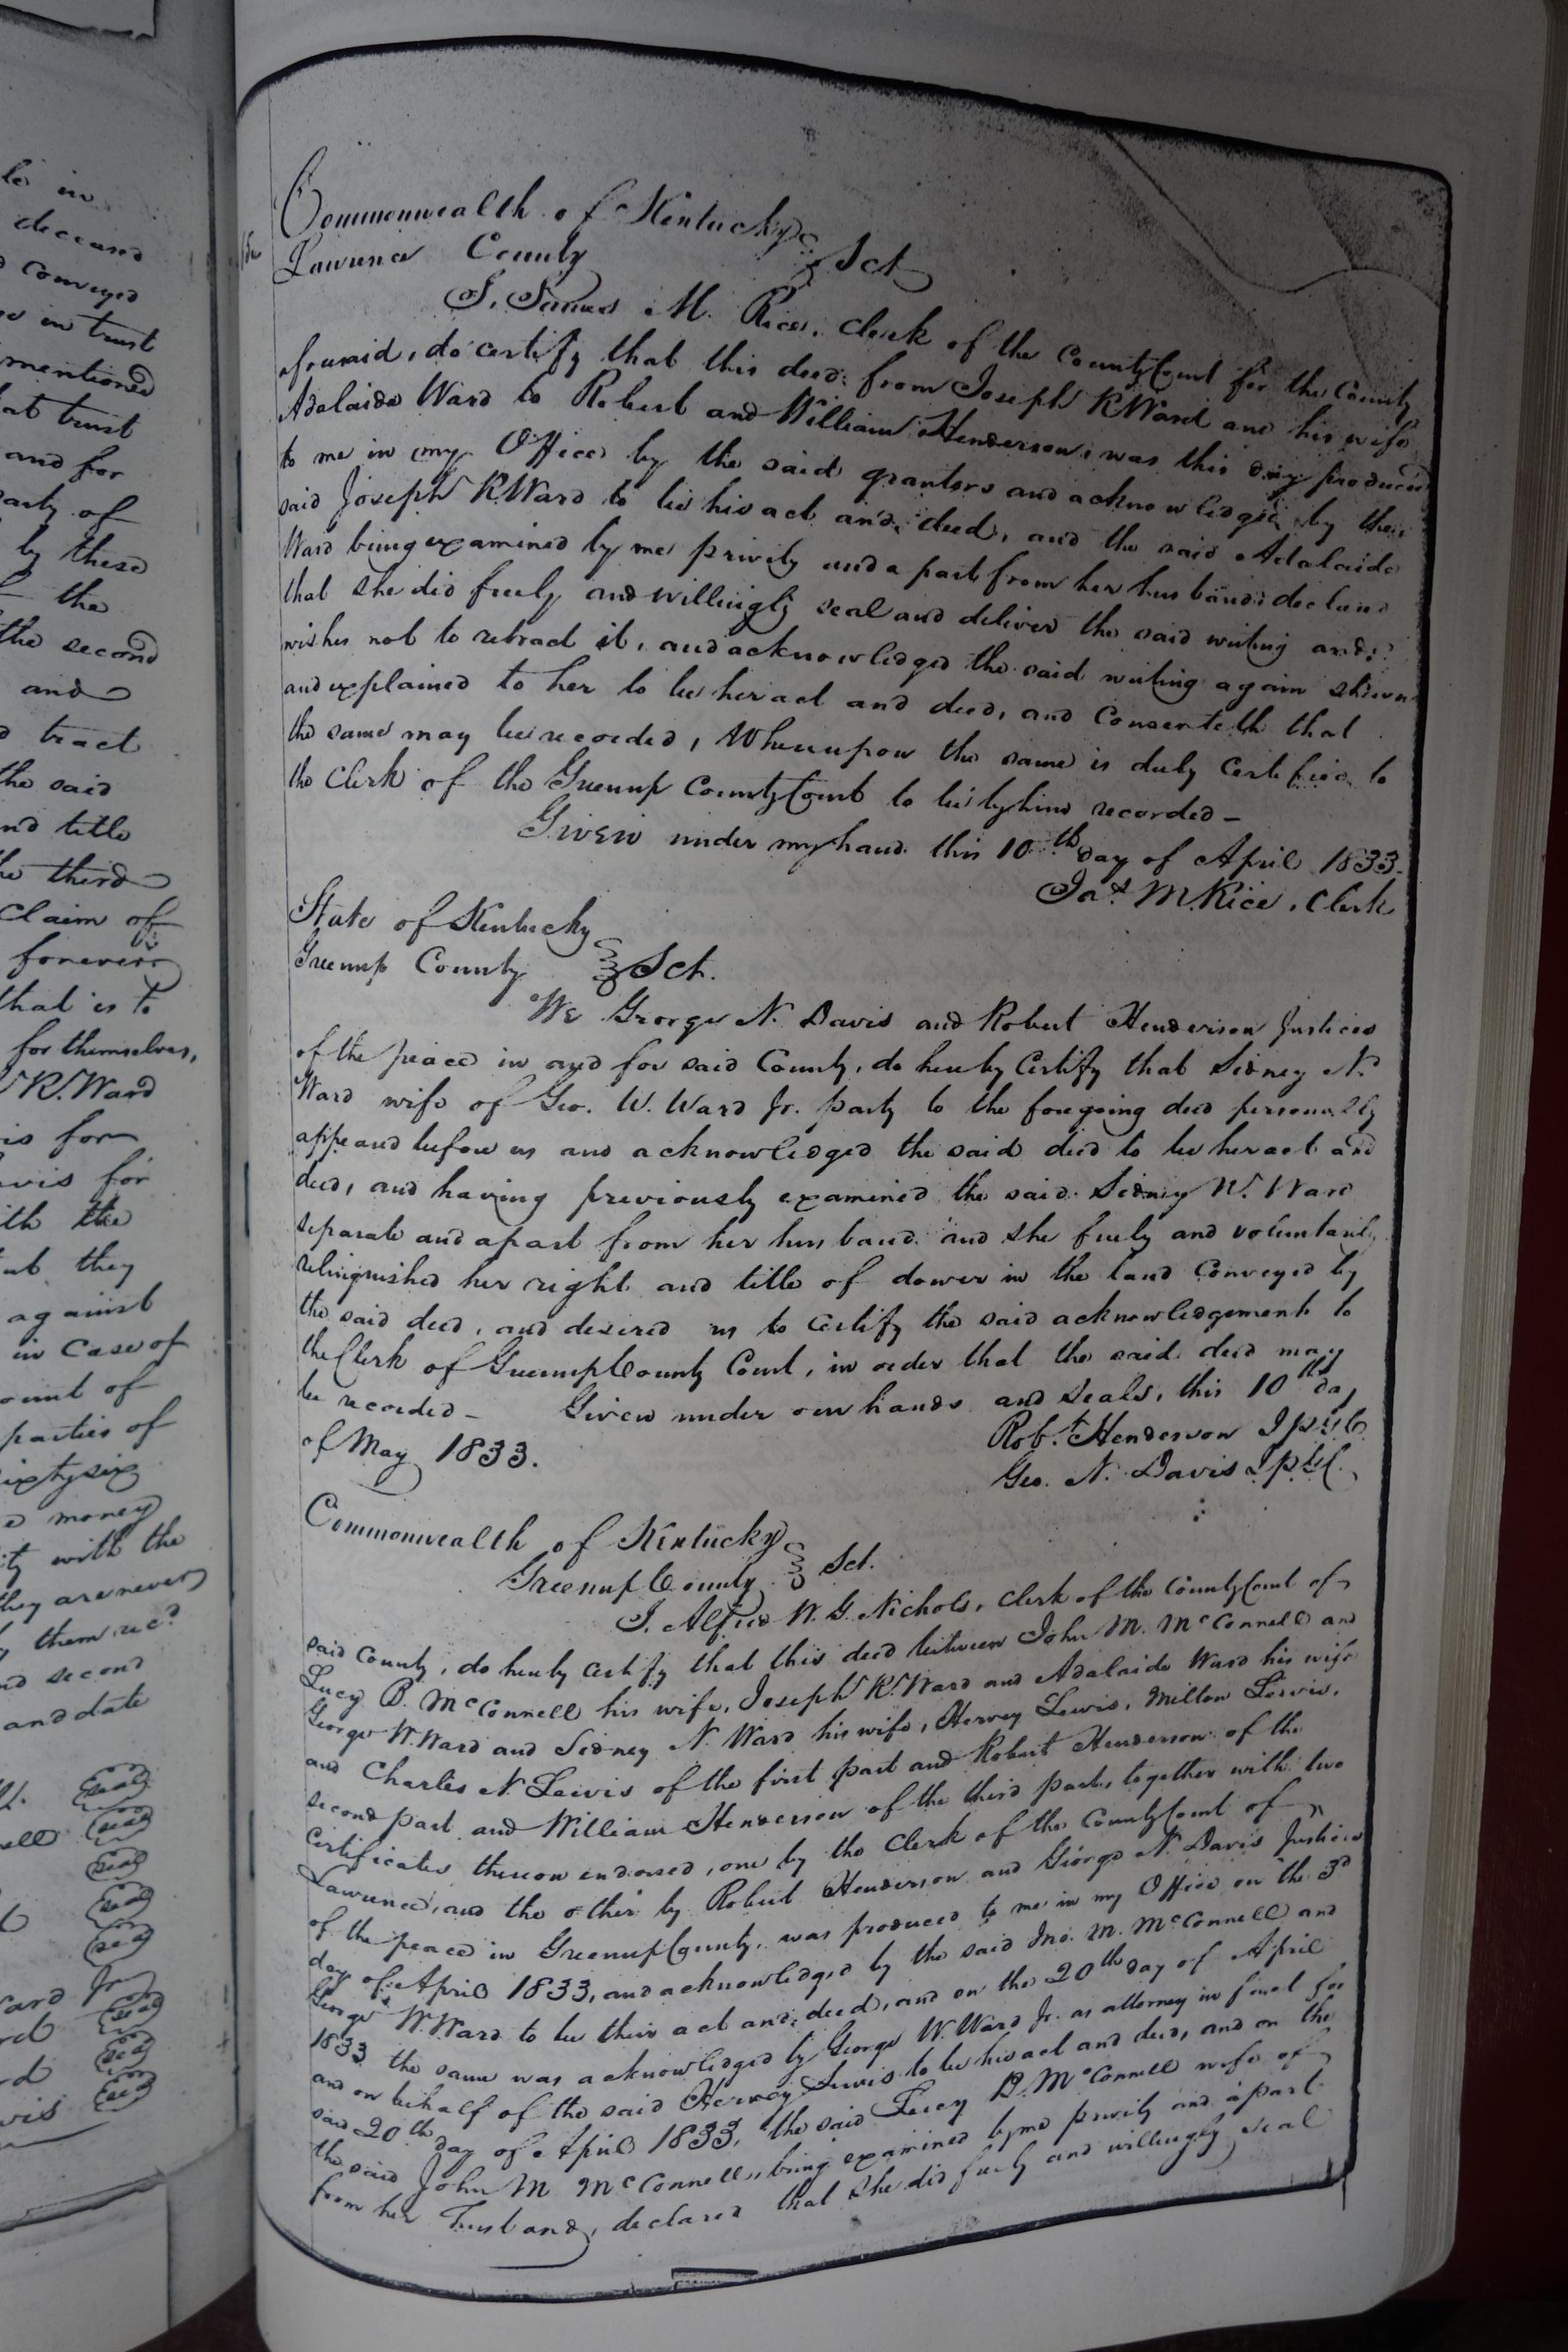 le in
deceased
conveyed
in trust
mentioned
that trust
and for
party of
by these
the
the second
and
tract
the said
and title
the third
Claim of
forever
that is to
for themselves,
R. Ward
is for
for
with the
they
against
in Case of
parties of
sixty six
money
with the
they are never
them
and second
and date
Seal
Seal
Seal
Seal
Seal
Ward Jr
Seal
Seal
Seal
Commonwealth of Kentucky
Lawrence County Sct
I, James M. Rice, Clerk of the County Court for the County
aforesaid, do certify that this deed from Joseph R Ward and his wife
Adalaide Ward to Robert and William Henderson, was this day produced
to me in my Office by the said grantors and acknowledged by the
said Joseph R Ward to be his act and deed, and the said Adalaide
Ward being examined by me privily and apart from her husband, declared
that she did freely and willingly seal and deliver the said writing and
wishes not to retract it, and acknowledged the said writing again shewn
and explained to her to be her act and deed, and Consenteth that
the same may be recorded, Whereupon the same is duly Certified to
the Clerk of the Greenup County Court to be by him recorded -
Given under my hand this 10th day of April 1833.
Jas. M. Rice, Clerk
State of Kentucky
Greenup County Sct.
We George N. Davis and Robert Henderson Justices
of the peace in and for said County, do hereby Certify that Sidney N.
Ward wife of Geo. W. Ward Jr. party to the foregoing deed personally
appeared before us and acknowledged the said deed to be her act and
deed, and having previously examined the said Sidney N. Ward
separate and apart from her husband and she freely and voluntarily
relinquished her right and title of dower in the land Conveyed by
the said deed, and desired us to Certify the said acknowledgement to
the Clerk of Greenup County Court, in order that the said deed may
be recorded - Given under our hands and Seals, this 10th day
of May 1833.
Robt. Henderson J P G C
Geo. N. Davis J P G C.
Commonwealth of Kentucky
Greenup County Sct.
I, Alfred W. G. Nichols, Clerk of the County Court of
said County, do hereby Certify that this deed between John M. McConnell and
Lucy B. McConnell his wife, Joseph R. Ward and Adalaide Ward his wife
George W. Ward and Sidney N. Ward his wife, Hervey Lewis, Milton Lewis,
and Charles N. Lewis of the first part and Robert Henderson of the
second part and William Henderson of the third part, together with two
Certificates thereon endorsed, one by the Clerk of the County Court of
Lawrence, and the other by Robert Henderson and George N. Davis Justices
of the peace in Greenup County, was produced to me in my Office on the 3d
day of April 1833, and acknowledged by the said Jno. M. McConnell and
George W. Ward to be their act and deed, and on the 20th day of April
1833 the same was acknowledged by George W. Ward Jr. as attorney in fact for
and on behalf of the said Hervey Lewis to be his act and deed, and on the
said 20th day of April 1833, the said Lucy B. McConnell wife of
the said John M McConnell, being examined by me privily and apart
from her Husband, declared that she did freely and willingly seal